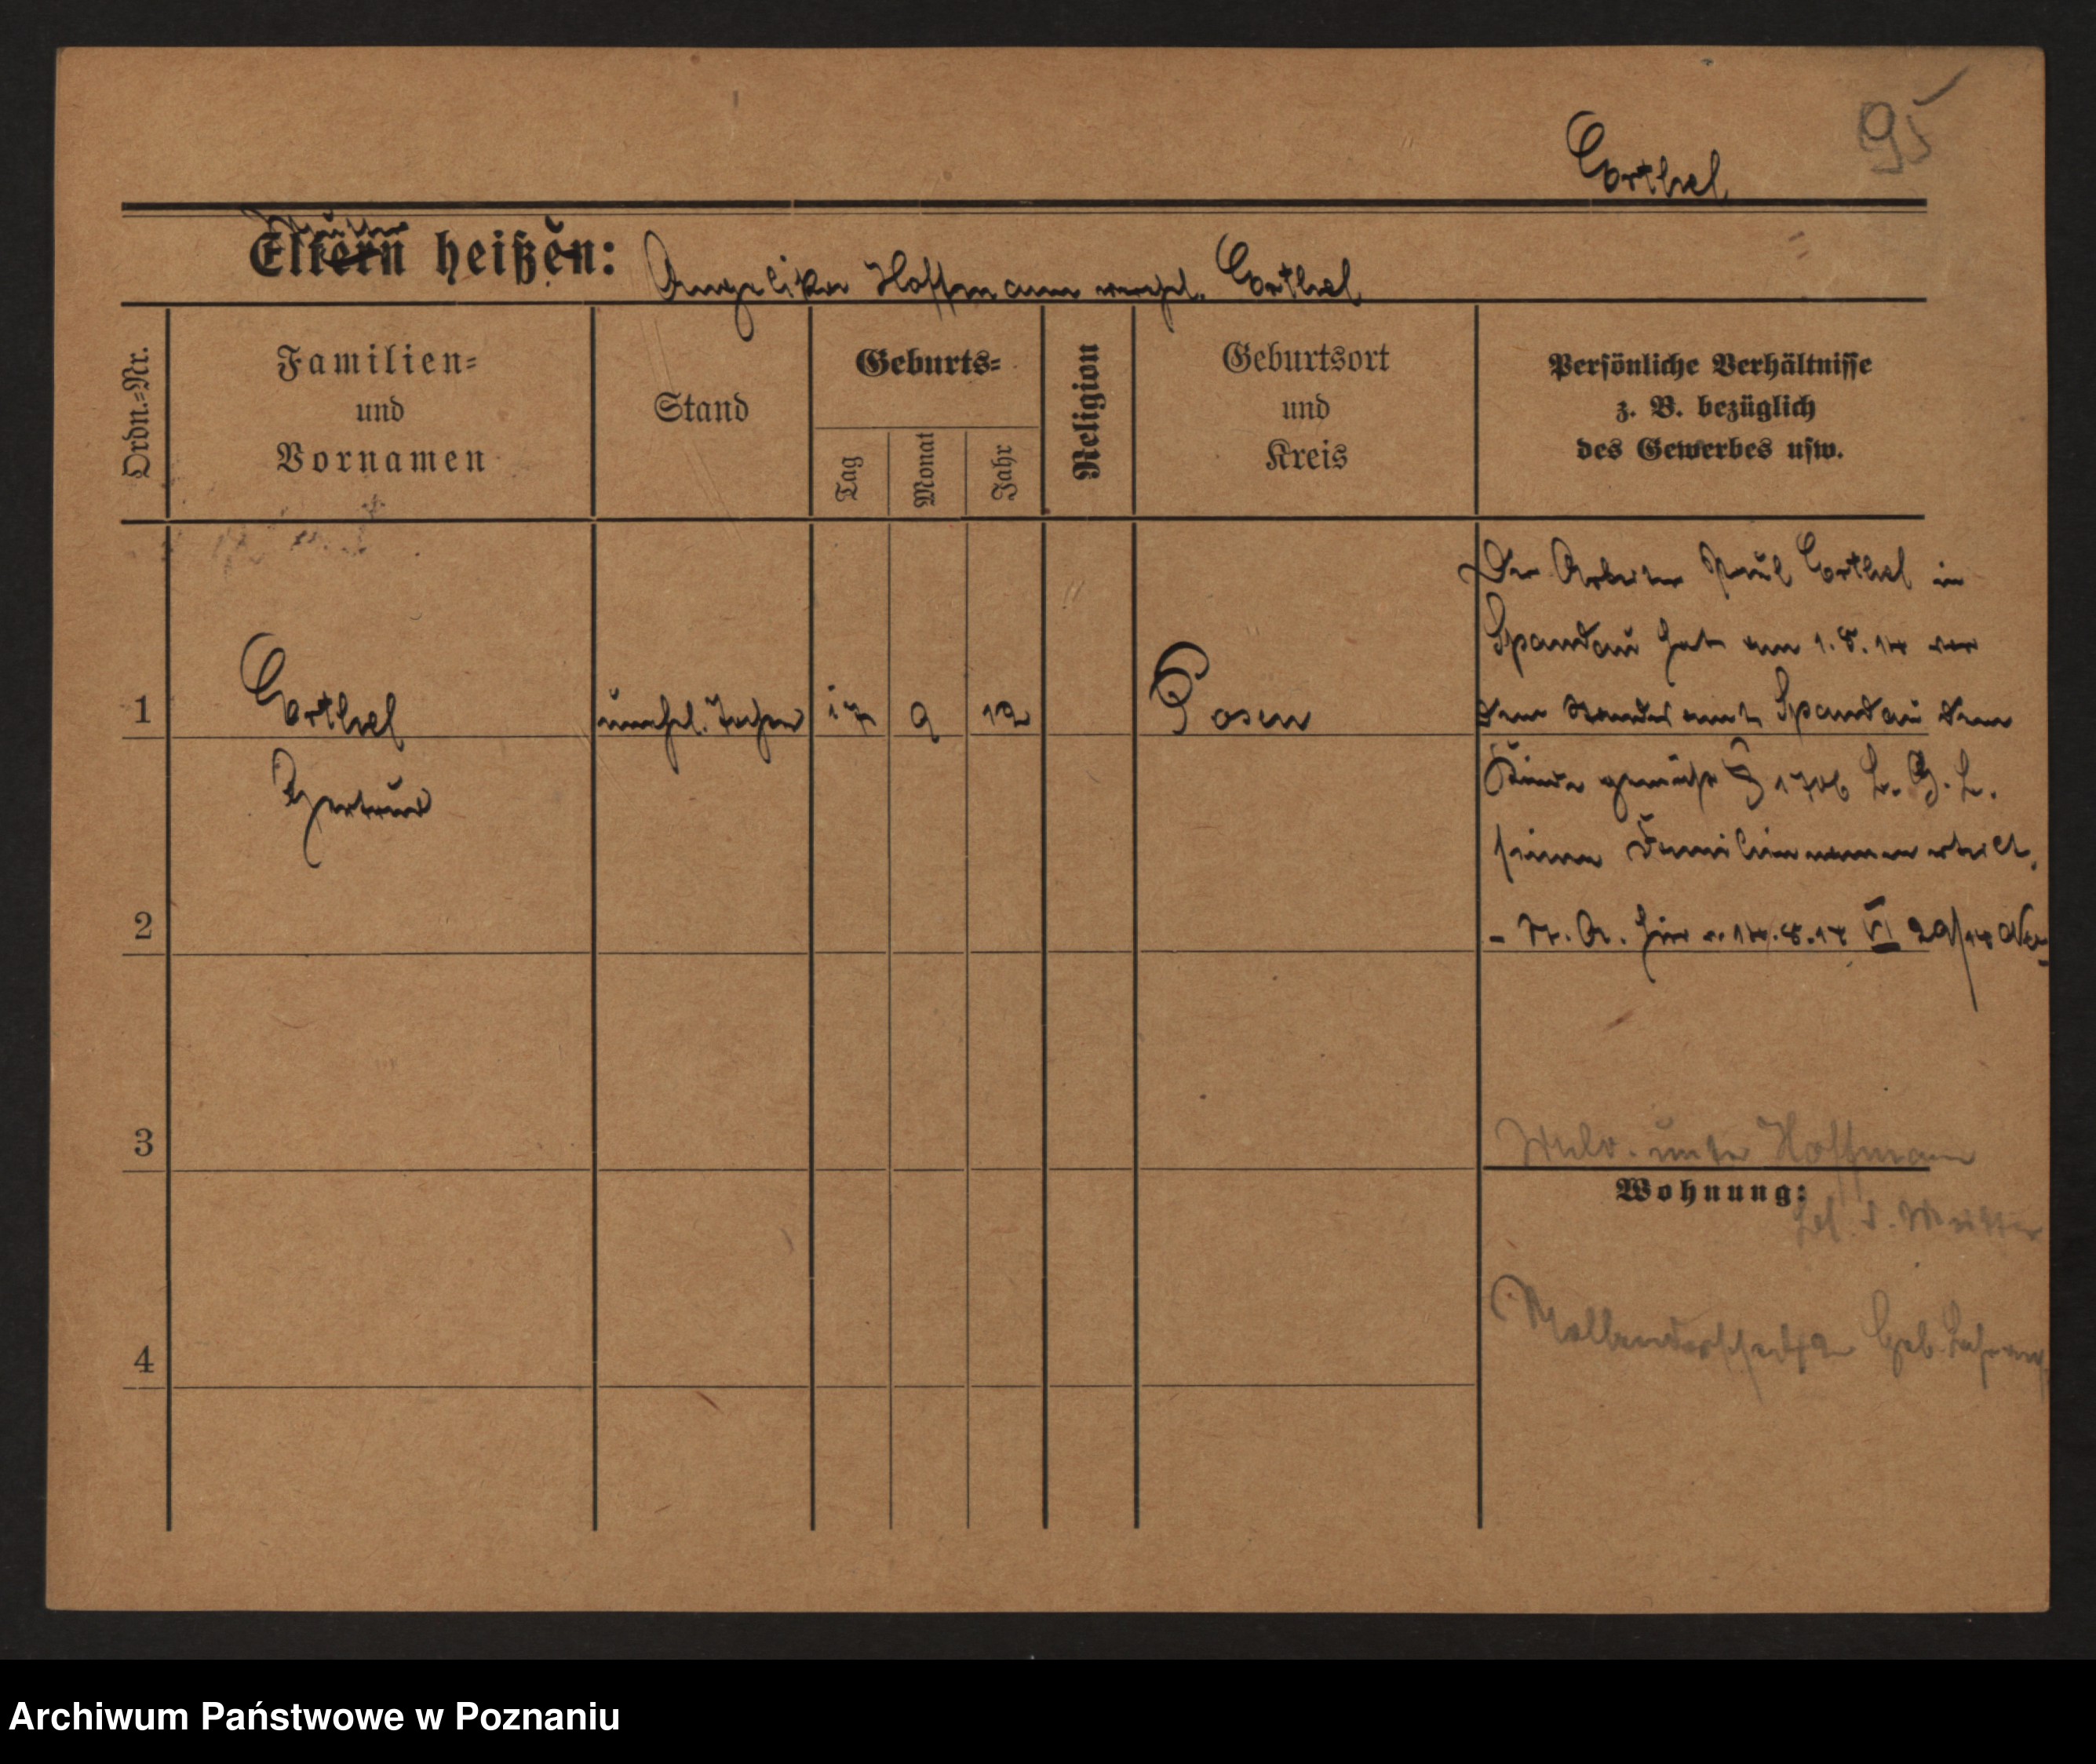 95
Corthel
Mutter
Eltern heißen: Angelika Hoffmann verehel. Corthel
Ordn.-Nr.
Familien-
und
Vornamen
Stand
Geburts-
Tag
Monat
Jahr
Religion
Geburtsort
und
Kreis
Persönliche Verhältnisse
z. B. bezüglich
des Gewerbes usw.
1
Corthel
Gertrud
unehel. Tochter
17
9
12
Posen
Der Arbeiter Paul Corthel in
Spandau hat am 1.8.14 vor
dem Standesamt Spandau dem
Kinde gemäß § 1706 B. G. B.
seinen Familiennamen erteilt.
- St. A. hier v. 14.8.14 VI
2
3
4
unter Hoffmann
Wohnung:
bei d. Mutter